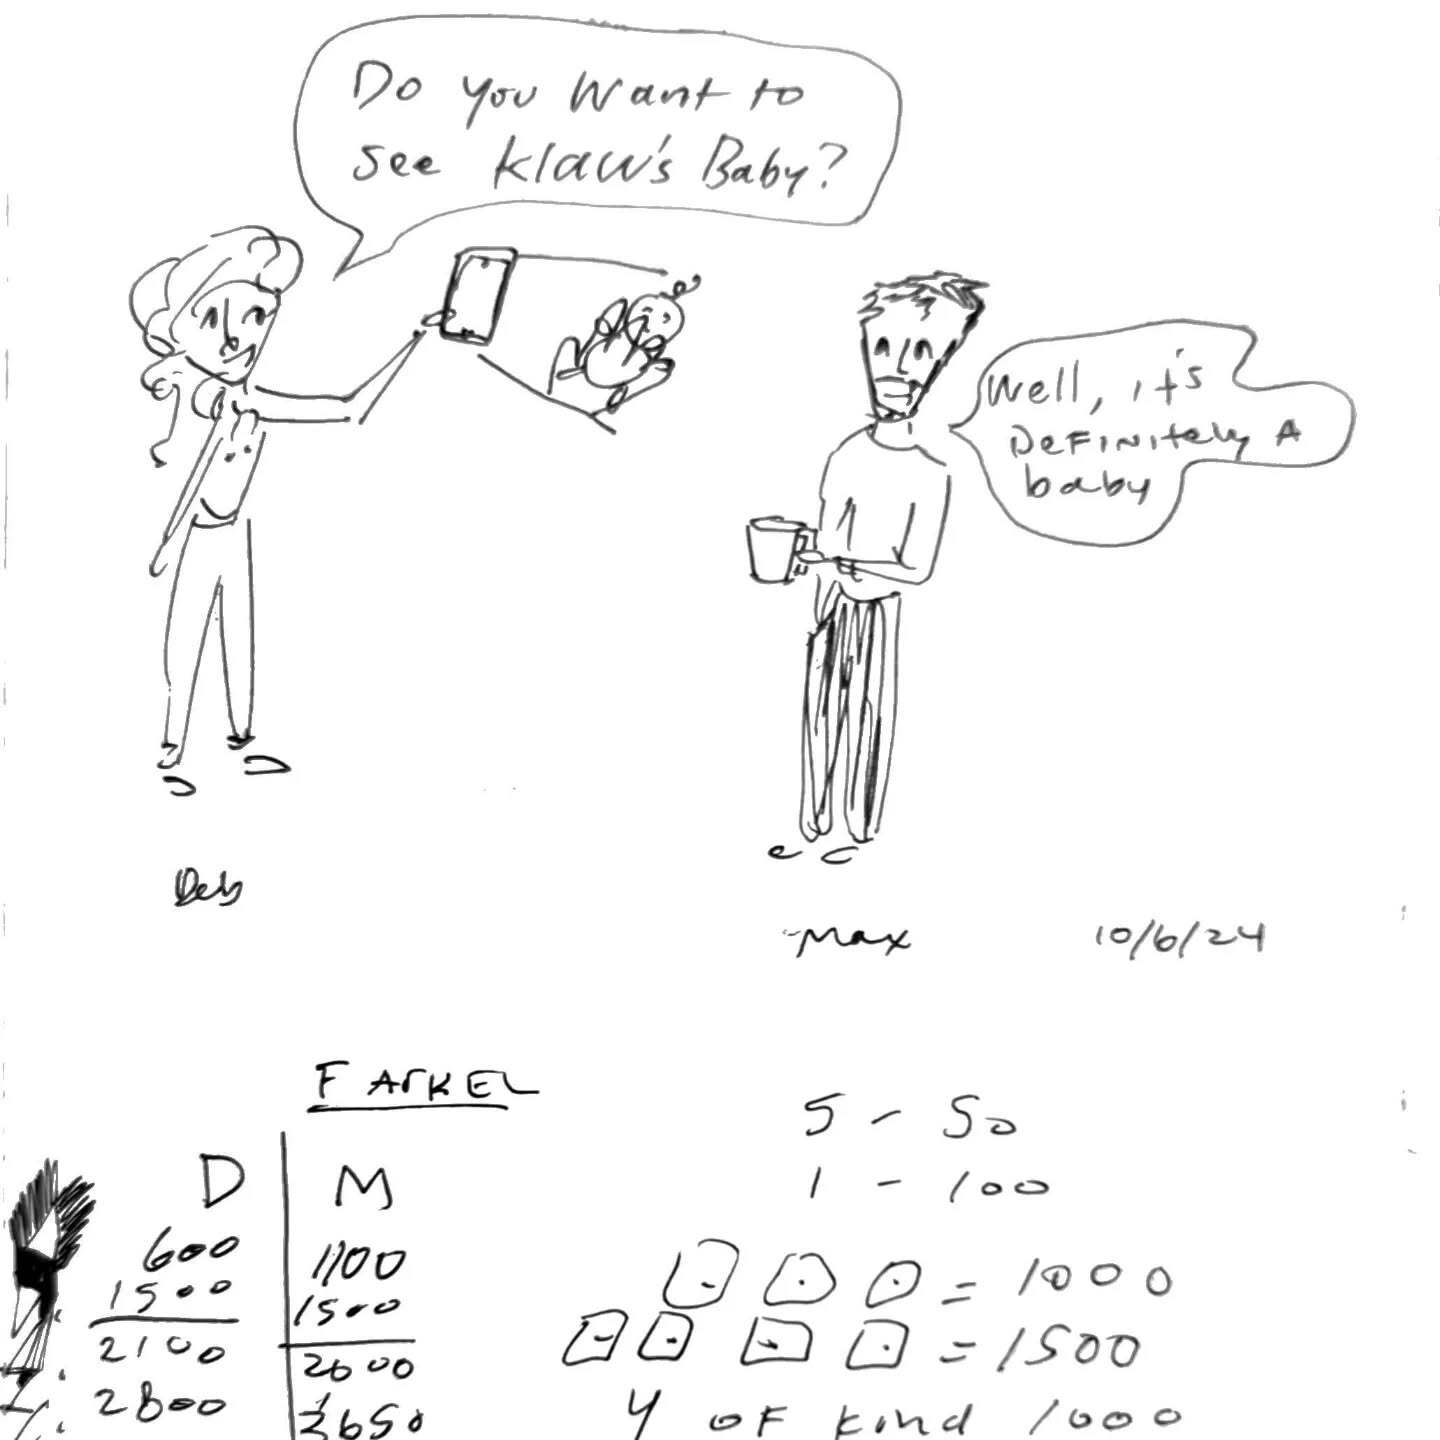 Do you want to
see Klaw's Baby?
Well, it's
Definitely A
baby
Deb
Max
10/6/24
FArKEL
5 - 50
1 - 100
D M
600 1100
1500 1500
2100 2600
2800 2650
= 1000
= 1500
4 of kind 1000